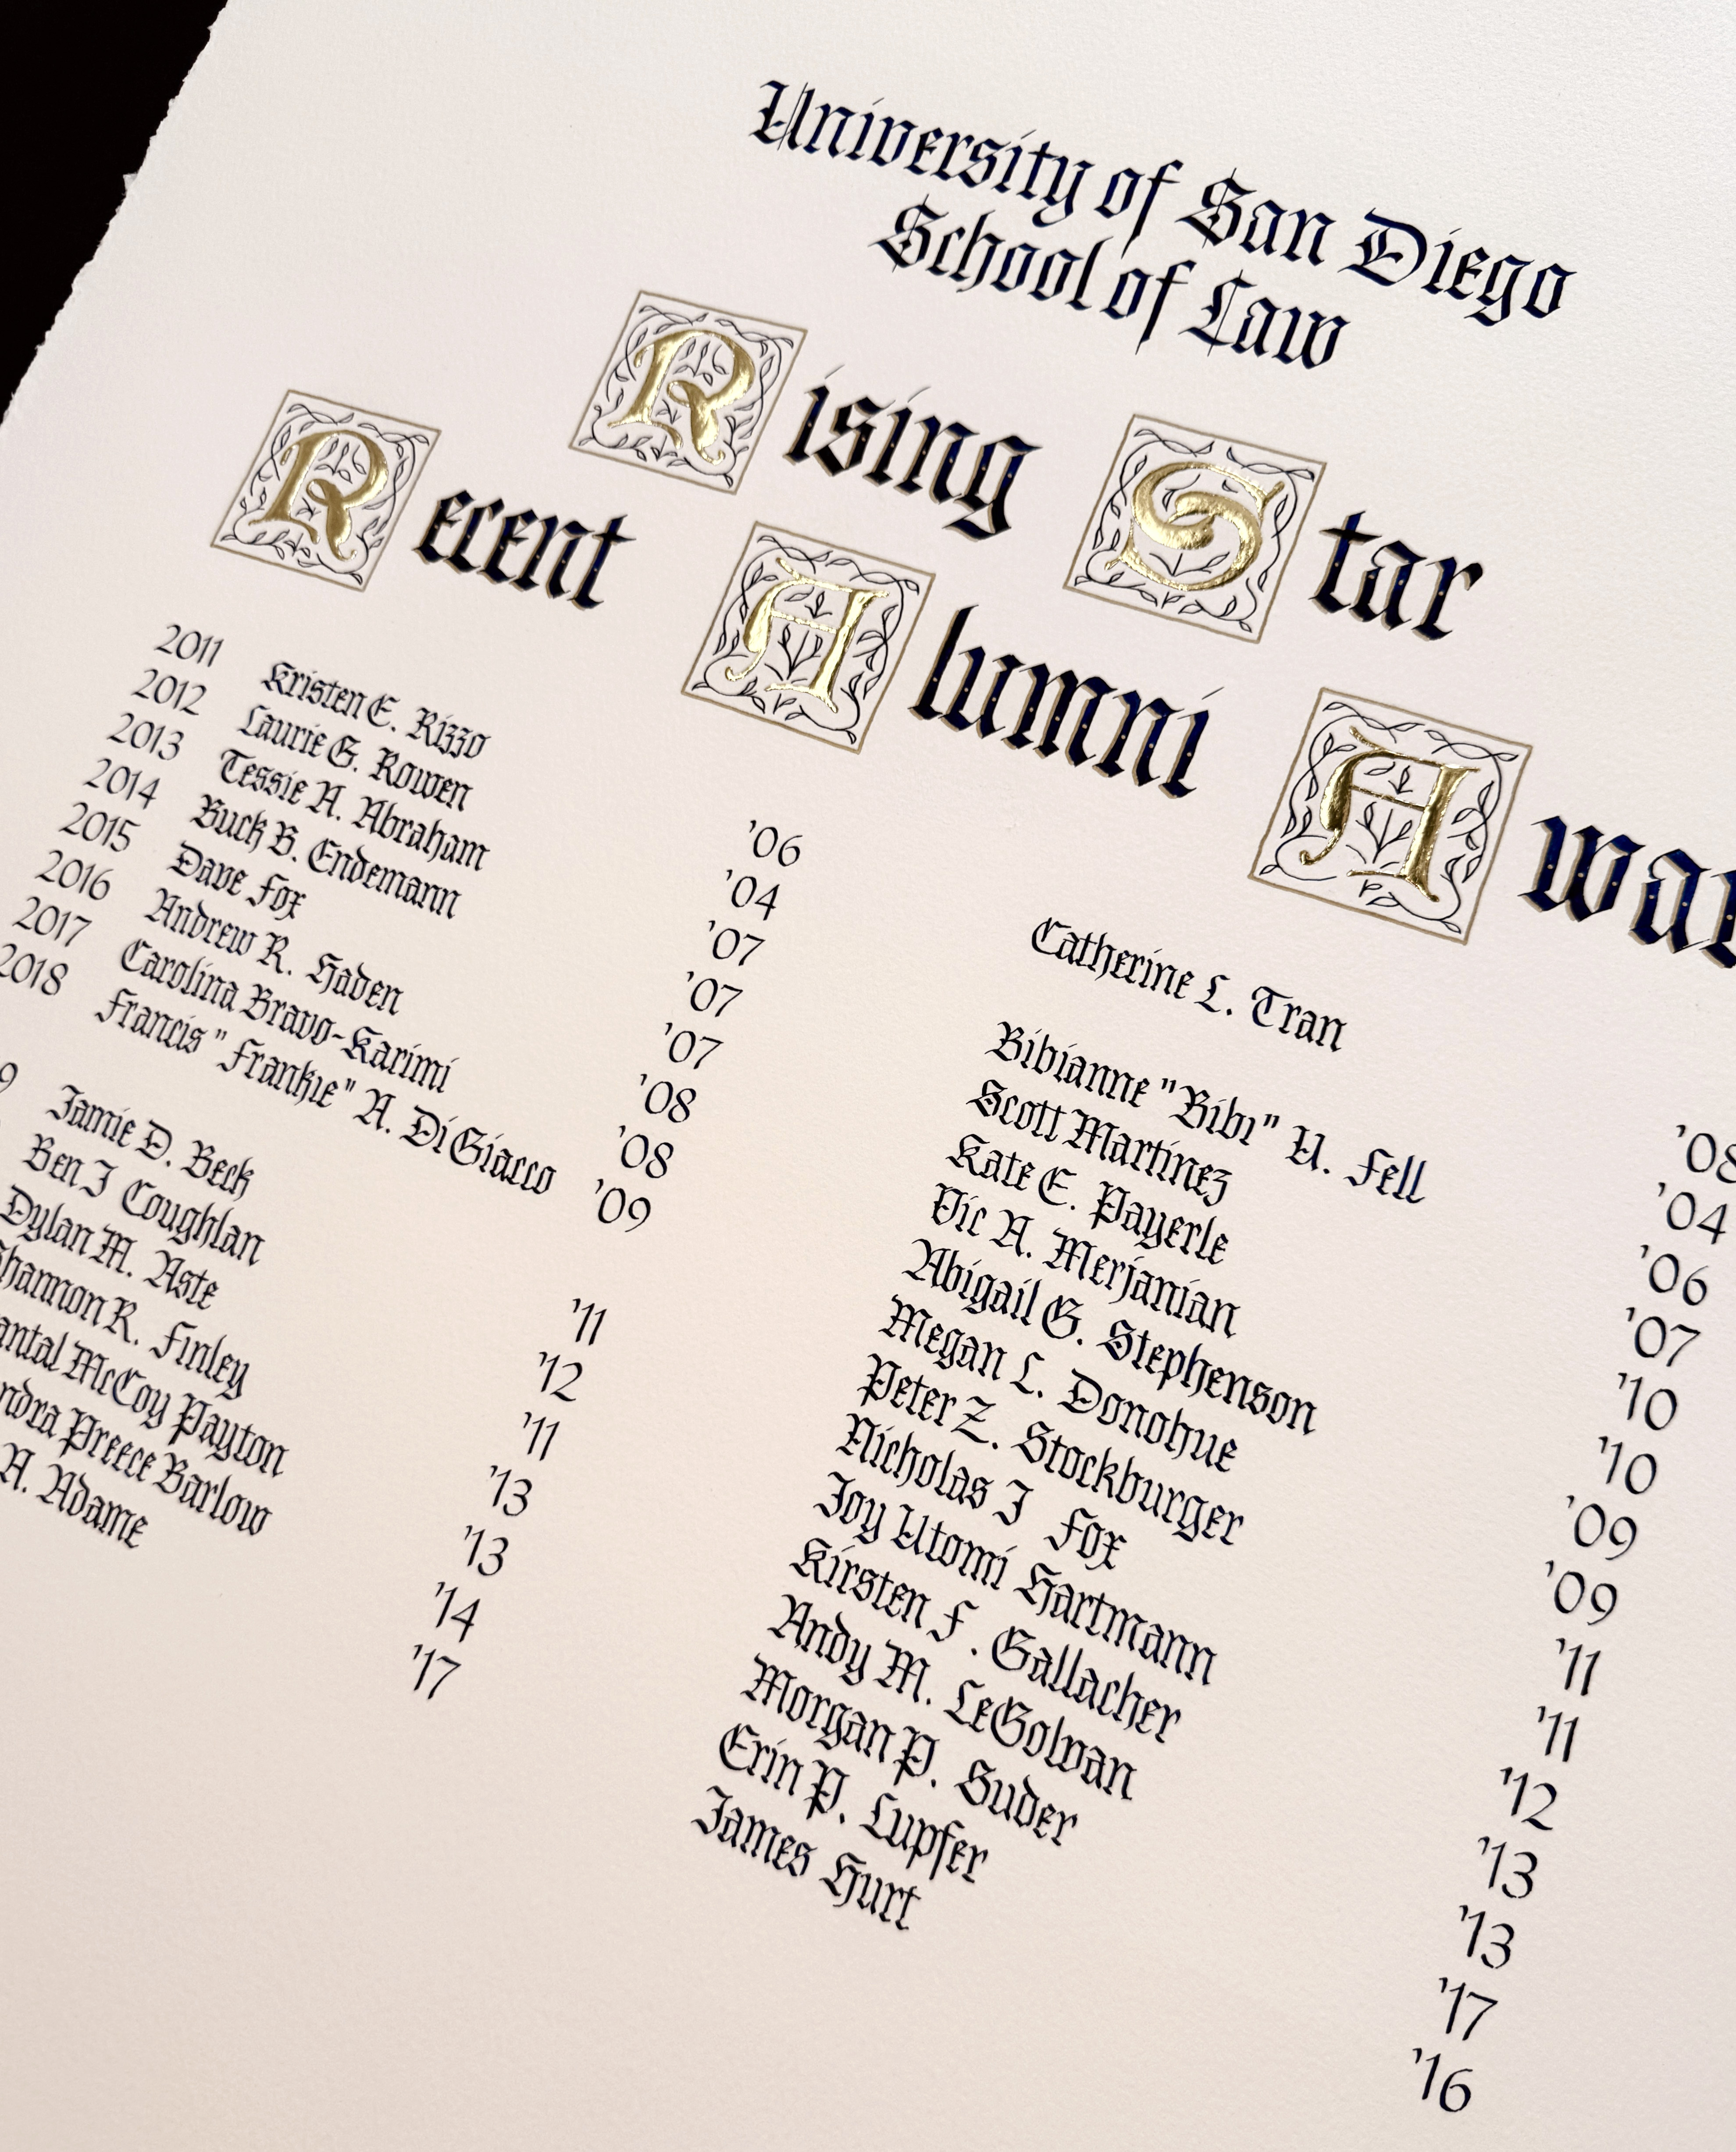 University of San Diego
School of Law
Rising Star
Recent Alumni
2011 Kristen E. Rizzo '06
2012 Laurie G. Rowen '04
2013 Tessie A. Abraham '07
2014 Buck B. Endemann '07
2015 Dave Fox '07
2016 Andrew R. Haden '08
2017 Carolina Bravo-Karimi '08
2018 Francis "Frankie" A. DiGiacco '09
9 Jamie D. Beck '11
Ben J Coughlan '12
Dylan M. Aste '11
R. Finley '13
McCoy Payton '13
Preece Barlow '14
A. Adame '17
Catherine L. Tran '08
Bibianne "Bibi" U. Fell '04
Scott Martinez '06
Kate E. Payerle '07
Vic A. Merjanian '10
Abigail G. Stephenson '10
Megan L. Donohue '09
Peter Z. Stockburger '09
Nicholas J Fox '11
Joy Utomi Hartmann '11
Kirsten F. Gallacher '12
Andy M. LeGolvan '13
Morgan P. Suder '13
Erin P. Lupfer '17
James Hurt '16